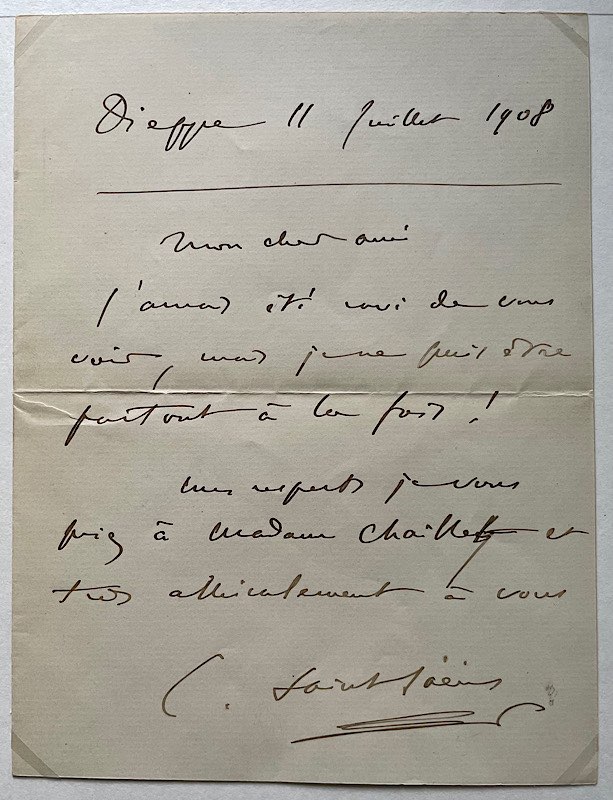 Dieppe 11 Juillet 1908
Mon cher ami
J'aurais été ravi de vous
voir, mais je ne puis être
partout à la fois !
Mes respects je vous
prie à Madame Chaillet et
très amicalement à vous
C. Saint-Saëns